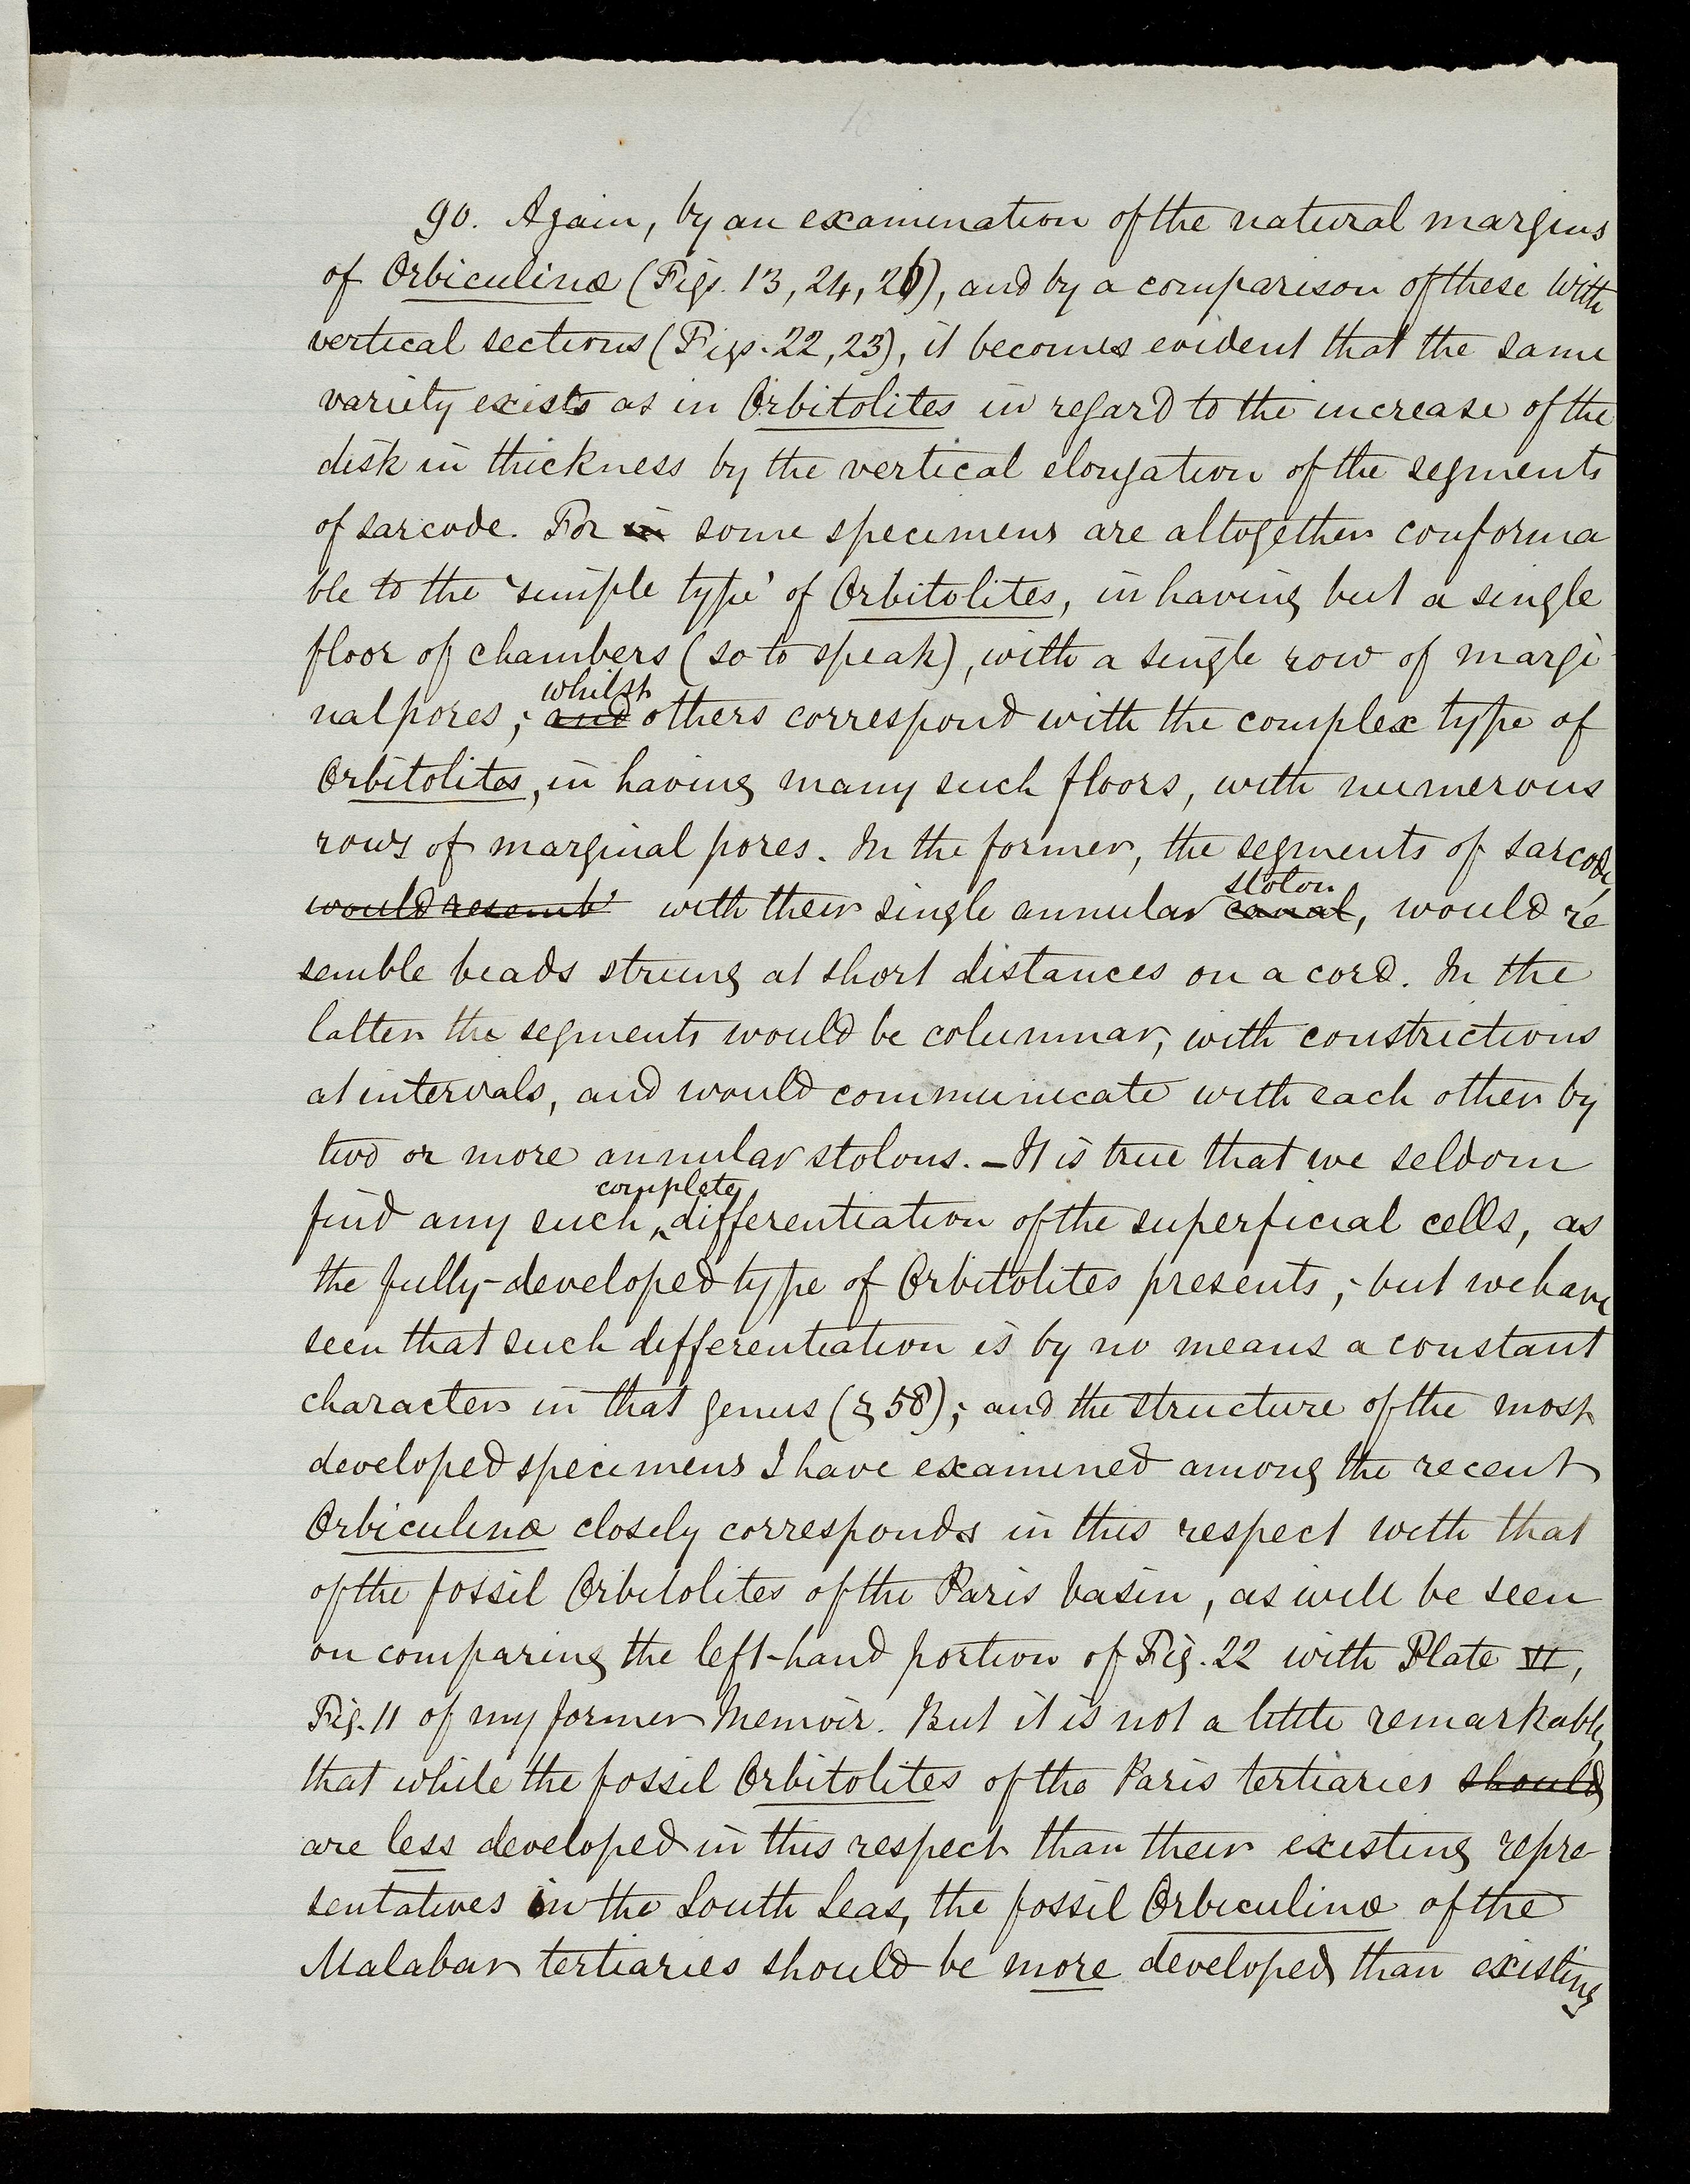 90. Again, by an examination of the natural margins
of Orbiculinæ (Figs. 13, 24, 26), and by a comparison of these with
vertical sections (Figs. 22, 23), it becomes evident that the same
variety exists as in Orbitolites in regard to the increase of the
disk in thickness by the vertical elongation of the segments
of sarcode. For in some specimens are altogether conforma
ble to the 'simple type' of Orbitolites, in having but a single
floor of chambers (so to speak), with a single row of margi
whilst
nal pores; and others correspond with the complex type of
Orbitolites, in having many such floors, with numerous
rows of marginal pores. In the former, the segments of sarcode,
stolon
would resemb with their single annular canal, would re
semble beads strung at short distances on a cord. In the
latter the segments would be columnar, with constrictions
at intervals, and would communicate with each other by
two or more annular stolons. – It is true that we seldom
complete
find any such ‸ differentiation of the superficial cells, as
the fully-developed type of Orbitolites presents; but we have
seen that such differentiation is by no means a constant
character in that genus (§ 58); and the structure of the most
developed specimens I have examined among the recent
Orbiculinæ closely corresponds in this respect with that
of the fossil Orbitolites of the Paris basin, as will be seen
on comparing the left-hand portion of Fig. 22 with Plate VI,
Fig. 11 of my former Memoir. But it is not a little remarkable,
that while the fossil Orbitolites of the Paris tertiaries should
are less developed in this respect than their existing repre-
sentatives in the South Seas, the fossil Orbiculinæ of the
Malabar tertiaries should be more developed than existing